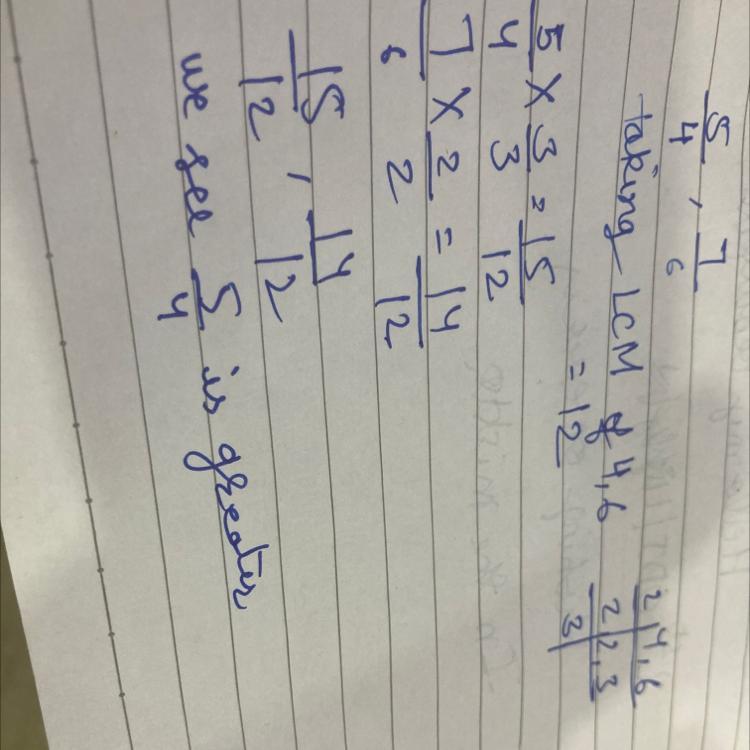 5/4 , 7/6
taking LCM of 4,6
= 12
2 | 4, 6
2 | 2, 3
3 |
5/4 × 3/3 = 15/12
7/6 × 2/2 = 14/12
15/12 , 14/12
we see 5/4 is greater